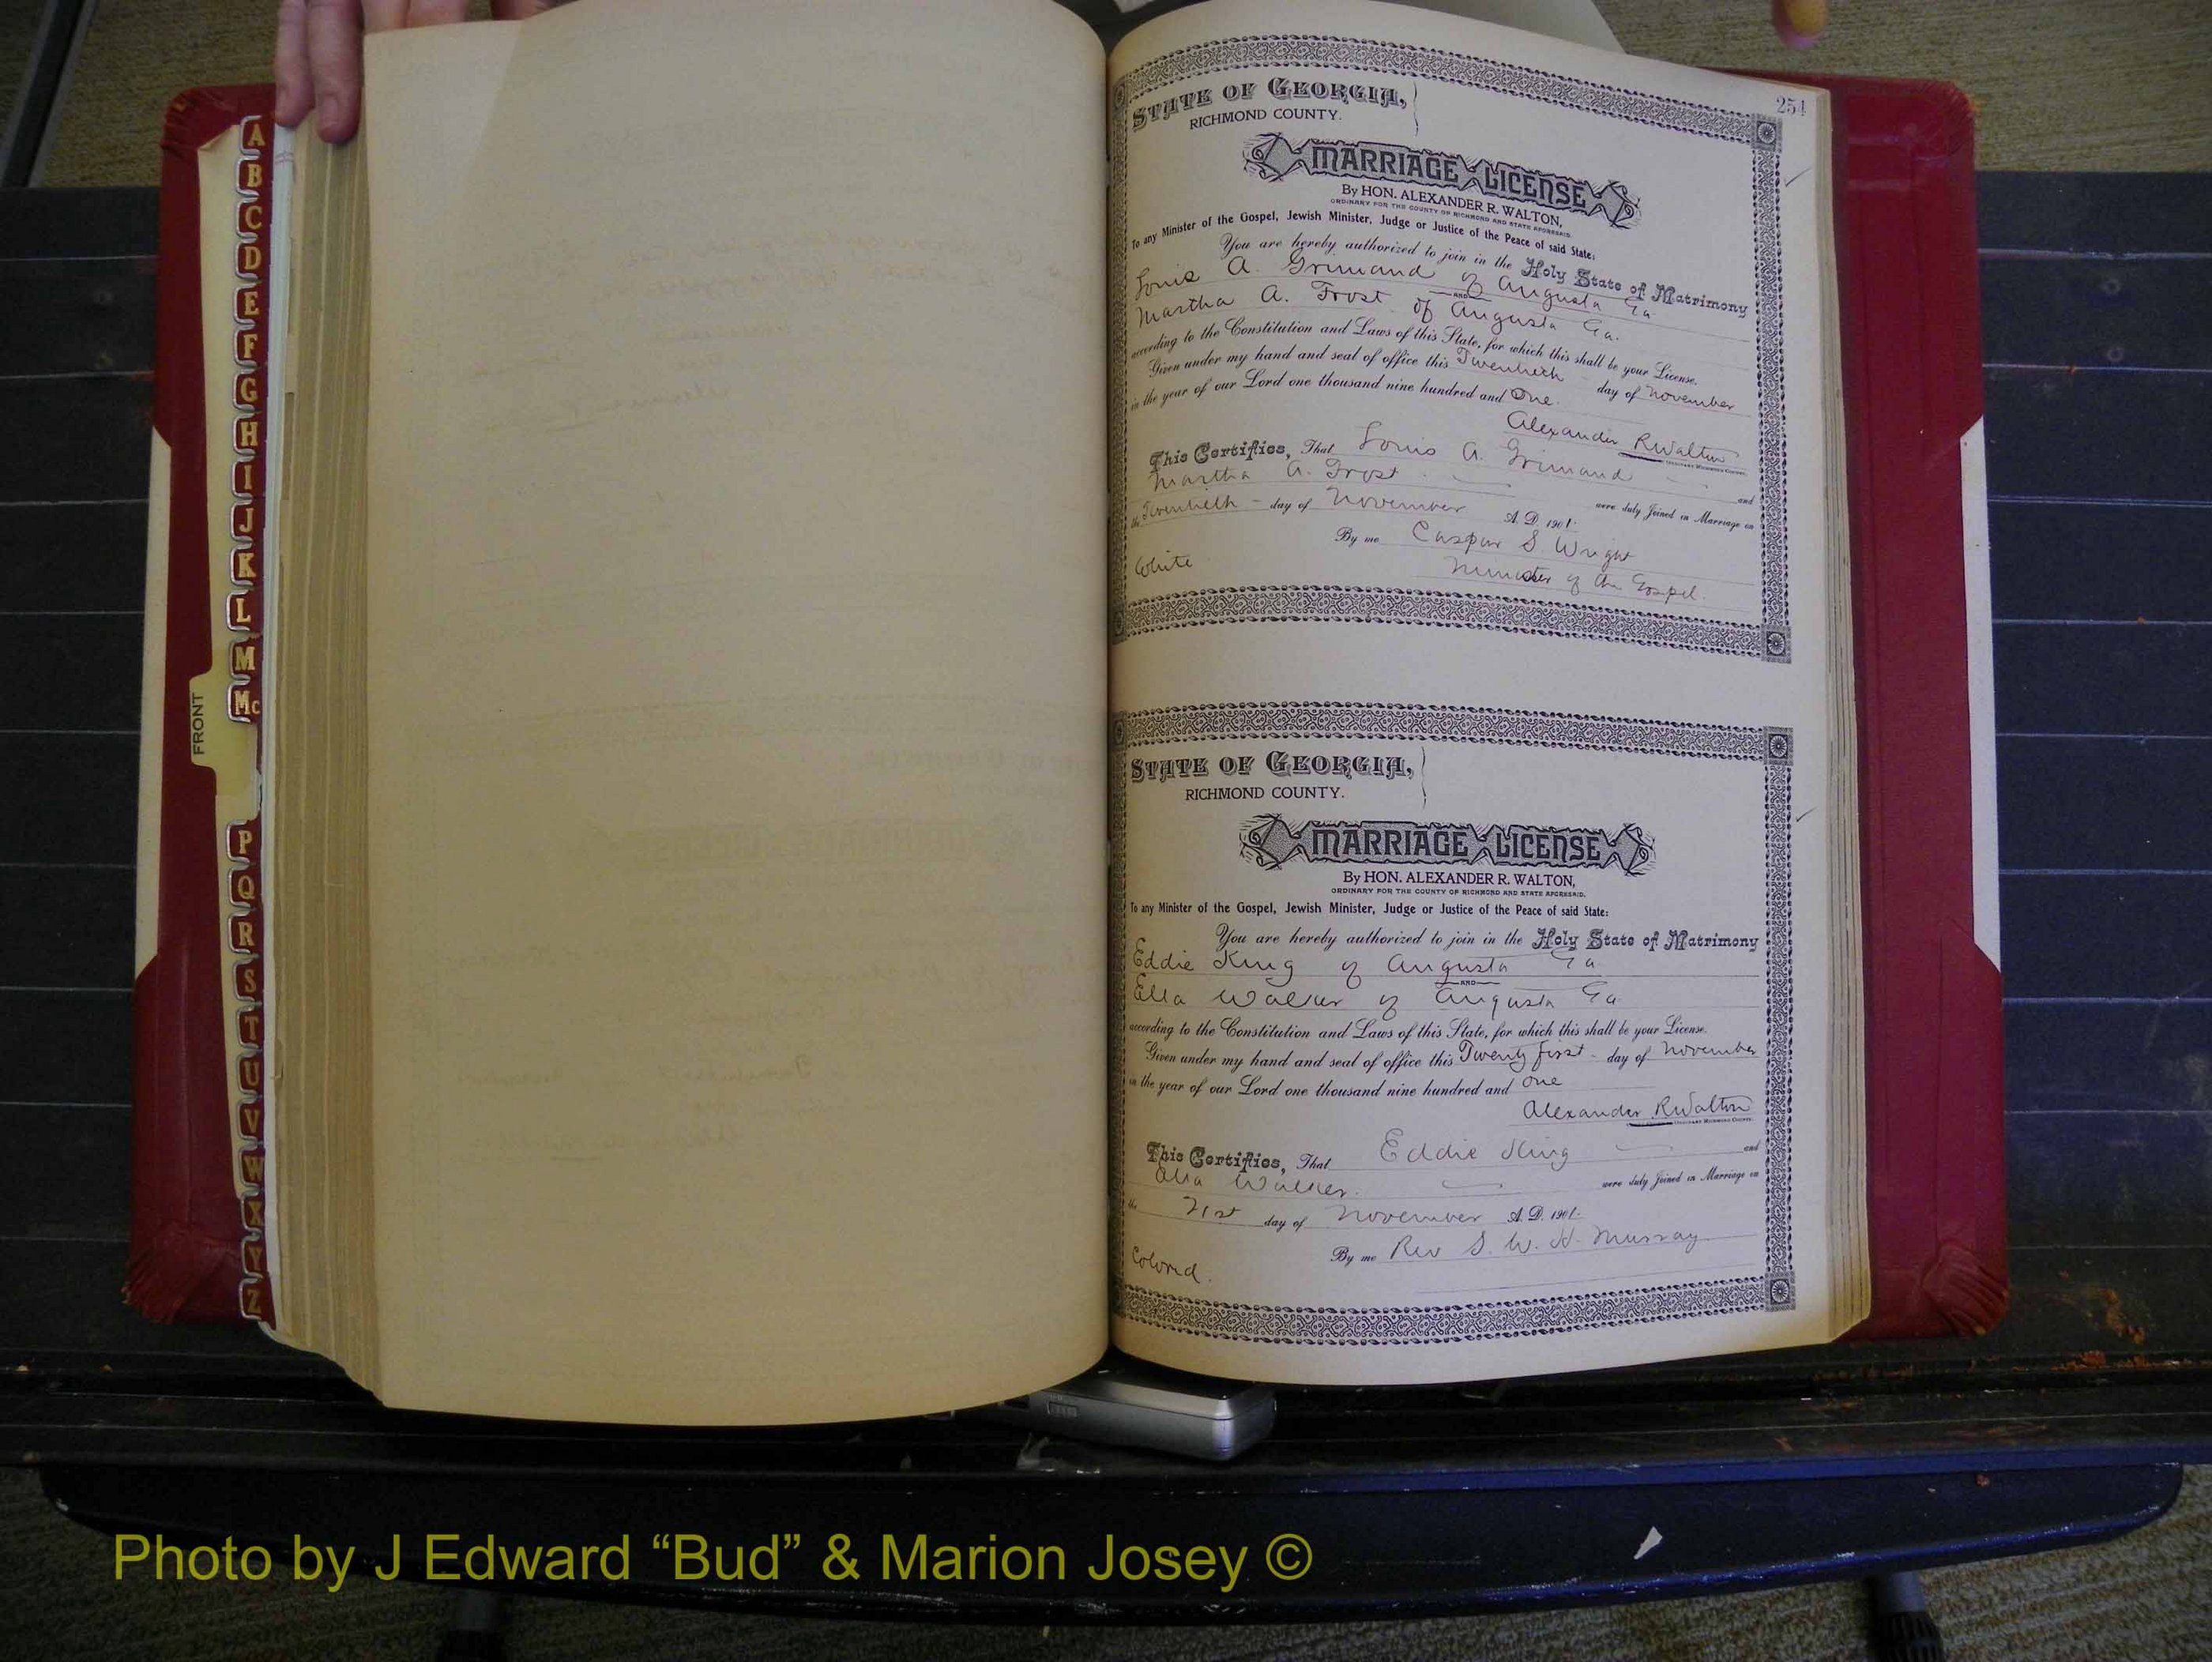 254
STATE OF GEORGIA,
RICHMOND COUNTY.
MARRIAGE LICENSE
By HON. ALEXANDER R. WALTON,
ORDINARY FOR THE COUNTY OF RICHMOND AND STATE AFORESAID.
To any Minister of the Gospel, Jewish Minister, Judge or Justice of the Peace of said State:
You are hereby authorized to join in the Holy State of Matrimony
Louis A. Grimaud of Augusta Ga
AND
Martha A. Frost of Augusta Ga.
according to the Constitution and Laws of this State, for which this shall be your License.
Given under my hand and seal of office this Twentieth day of November
in the year of our Lord one thousand nine hundred and One.
Alexander R Walton
ORDINARY RICHMOND COUNTY.
This Certifies, That Louis A. Grimaud and
Martha A. Frost were duly Joined in Marriage on
the Twentieth day of November A. D. 1901.
By me Caspar S. Wright
White Minister of the Gospel.
STATE OF GEORGIA,
RICHMOND COUNTY.
MARRIAGE LICENSE
By HON. ALEXANDER R. WALTON,
ORDINARY FOR THE COUNTY OF RICHMOND AND STATE AFORESAID.
To any Minister of the Gospel, Jewish Minister, Judge or Justice of the Peace of said State:
You are hereby authorized to join in the Holy State of Matrimony
Eddie King of Augusta Ga
AND
Ella Walker of Augusta Ga.
according to the Constitution and Laws of this State, for which this shall be your License.
Given under my hand and seal of office this Twenty first day of November
in the year of our Lord one thousand nine hundred and One
Alexander R Walton
ORDINARY RICHMOND COUNTY.
This Certifies, That Eddie King and
Ella Walker. were duly Joined in Marriage on
the 21st day of November A. D. 1901.
By me Rev S. W. H. Murray
Colored.
A
B
C
D
E
F
G
H
I
J
K
L
M
Mc
FRONT
P
Q
R
S
T
U
V
W
X
Y
Z
Photo by J Edward “Bud” & Marion Josey ©